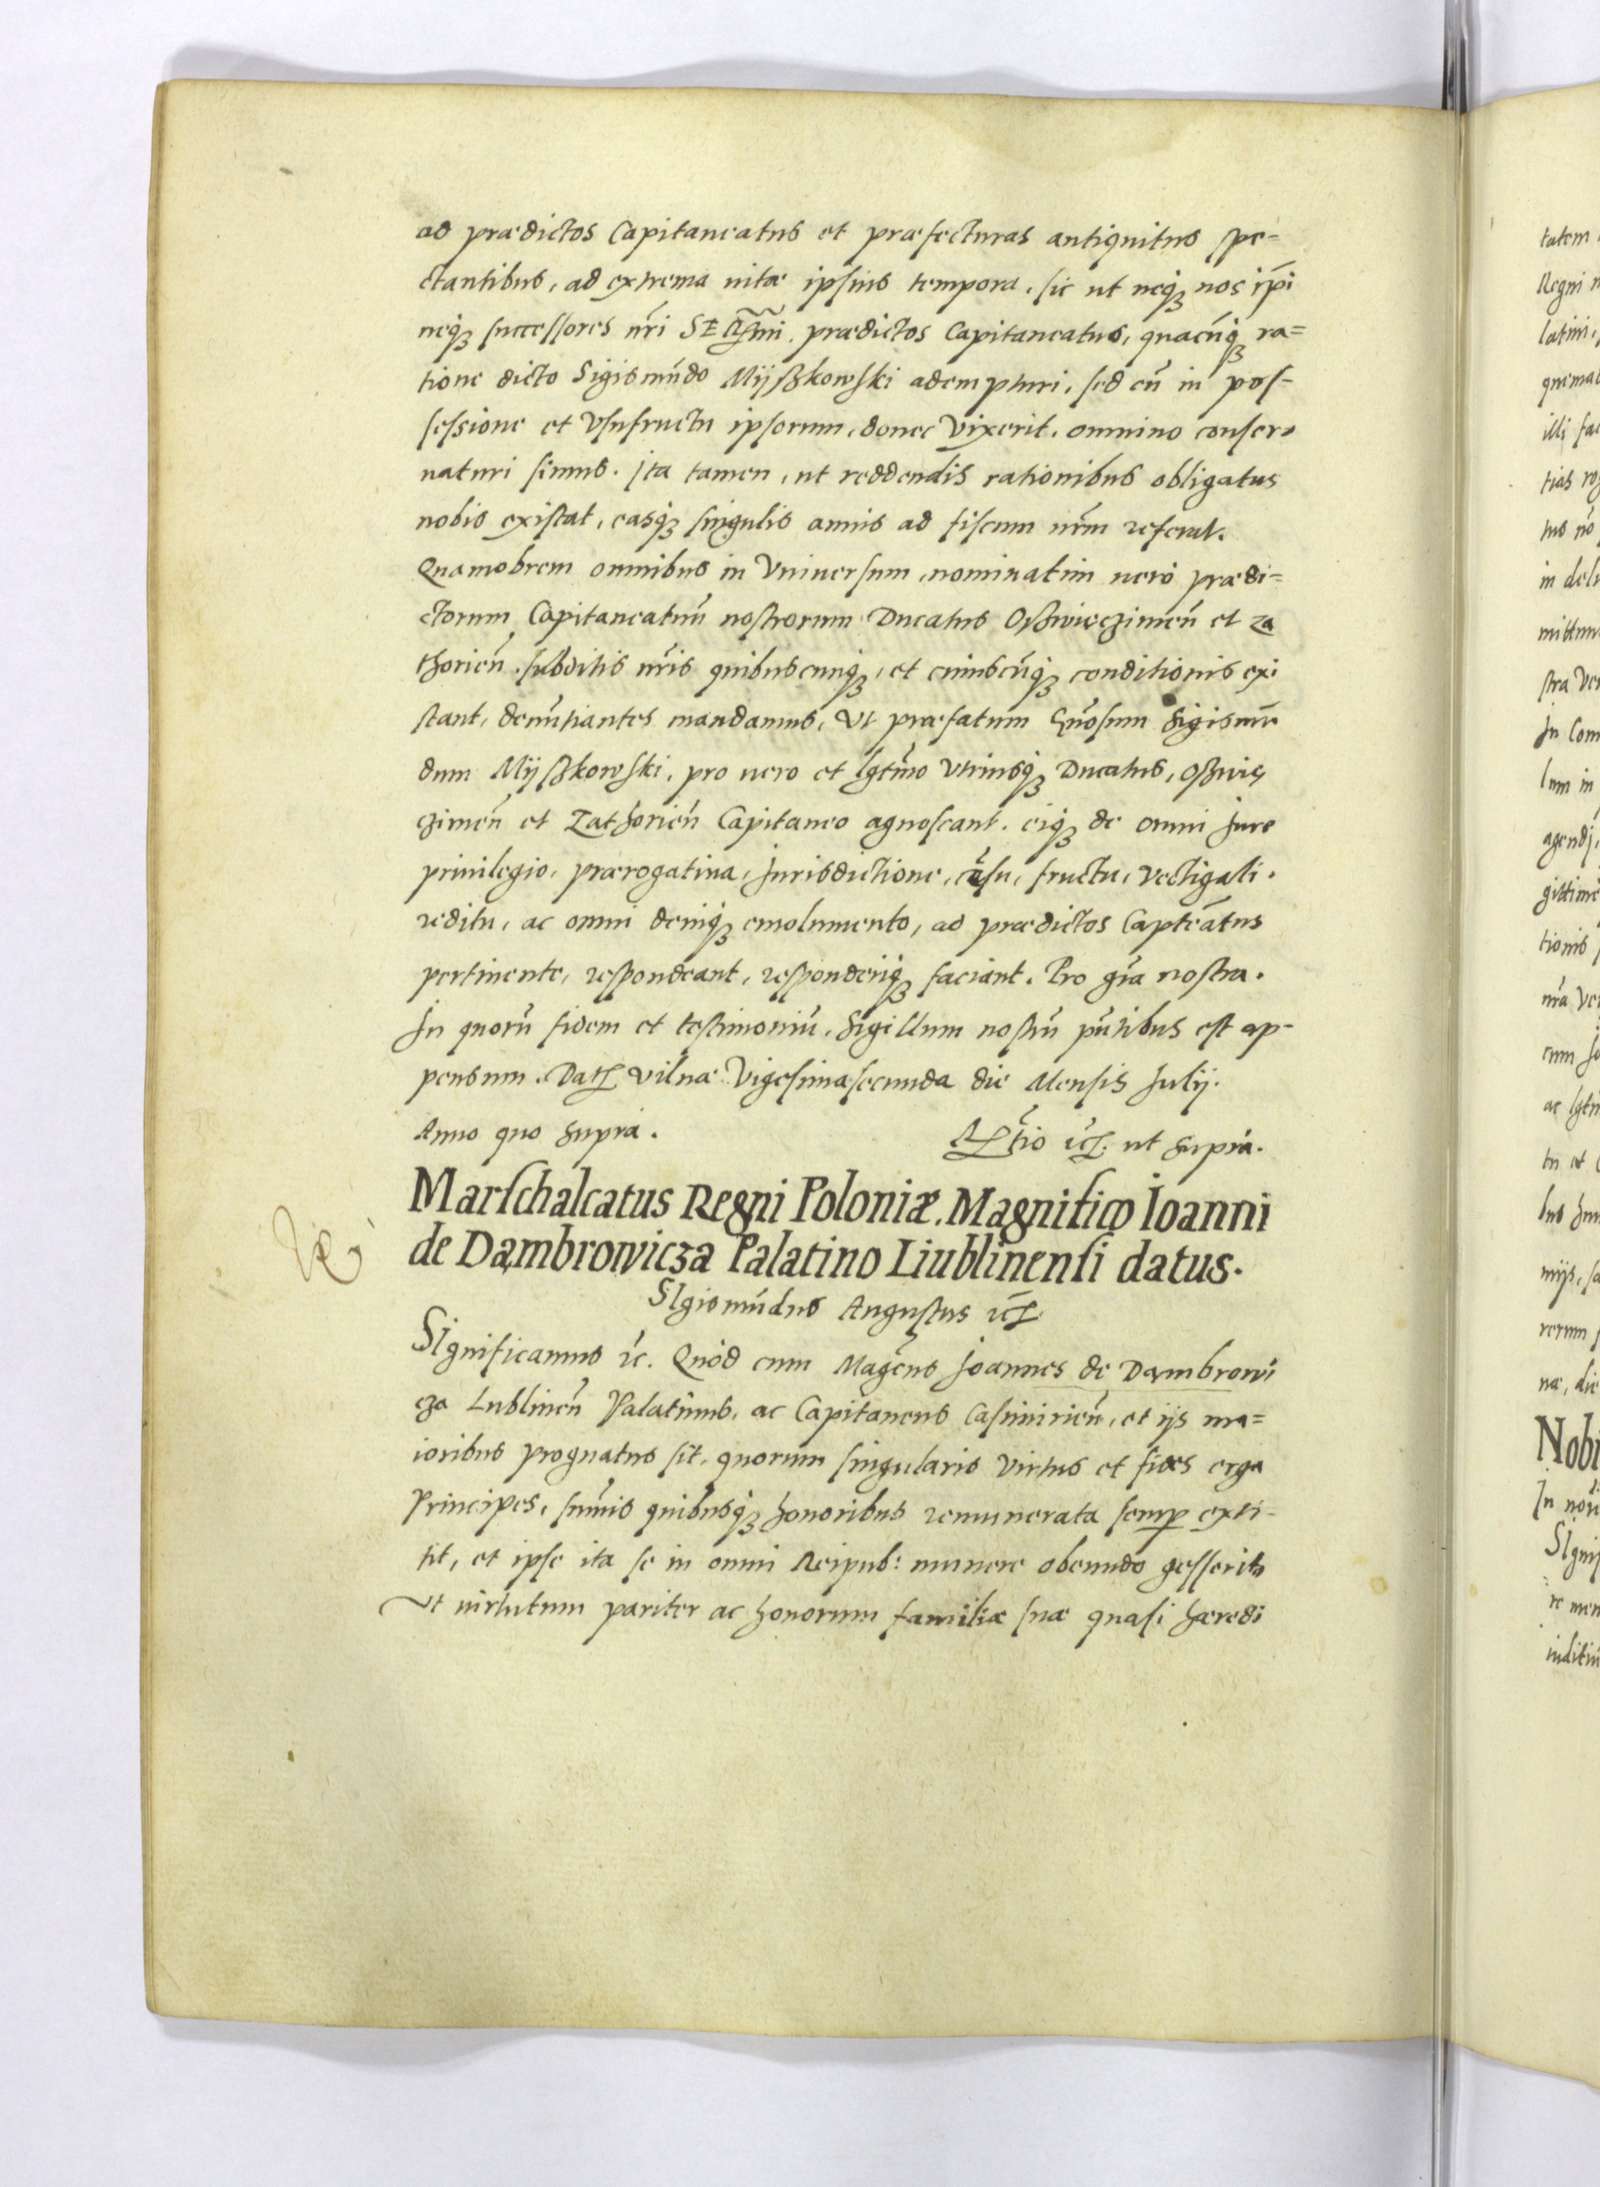 ad prædictos Capitaneatus et præfecturas antiquitus spe=
ctantibus, ad extrema uitæ ipsius tempora. sic ut neqȝ nos ip̄i
neqȝ successores nr̄i prædictos Capitaneatus, quacūqȝ ra=
tione dicto Sigismūdo Mijszkowski adempturi, sed eū in pos-
sessione et Vsufructu ipsorum, donec Vixerit. omnino conser=
uaturi simus. Ita tamen, ut reddendis rationibus obligatus
nobis existat, easqȝ singulis annis ad fiscum nr̄m referat.
Quamobrem omnibus in Vniuersum, nominatim uerò prædi=
ctorum Capitaneatuū nostrorum Ducatus Oszwieczimen̄ et Za
thorien̄. subditis nr̄is quibuscunqȝ, et cuiuscūqȝ conditionis exi
stant, denūtiantes mandamus, Vt præfatum Gn̄osum Sigismū
dum Mijszkowski, pro uero et lgtm̄o Vtriusqȝ Ducatus, Oszwię
czimen̄ et Zathorien̄ Capitaneo agnoscant. eiqȝ de omni Jure
priuilegio, prærogatiua, Jurisdictione, cēsu, fructu, Vectigali.
reditu, ac omni deniqȝ emolumento, ad prædictos Capteātus
pertinente, respondeant, responderiqȝ faciant. Pro gr̄a nostra.
In quorū fidem et testimoniū. Sigillum nostrū pn̄tibus est ap-
pensum. Dat Vilnæ Vigesimasecunda die Mensis Julij.
Anno quo supra. ut supra.
Marschalcatus Regni Poloniæ. Magnifico Ioanni
de Dambrowicza Palatino Liublinensi datus.
SIgismūdus Augustus
SIgnificamus ꝛc. Quòd cum Magcūs Joannes de Dąmbrowi
cza Lublinen̄ Palatinus. ac Capitaneus Casimirien̄, et ijs ma=
ioribus prognatus sit, quorum singularis Virtus et fides erga
Principes, sum̄is quibusqȝ honoribus remunerata semꝑ exti-
tit, et ipse ita se in omni Reipub: munere obeundo gesserit,
Vt uirtutum pariter ac honorum familiæ suæ quasi hæredi